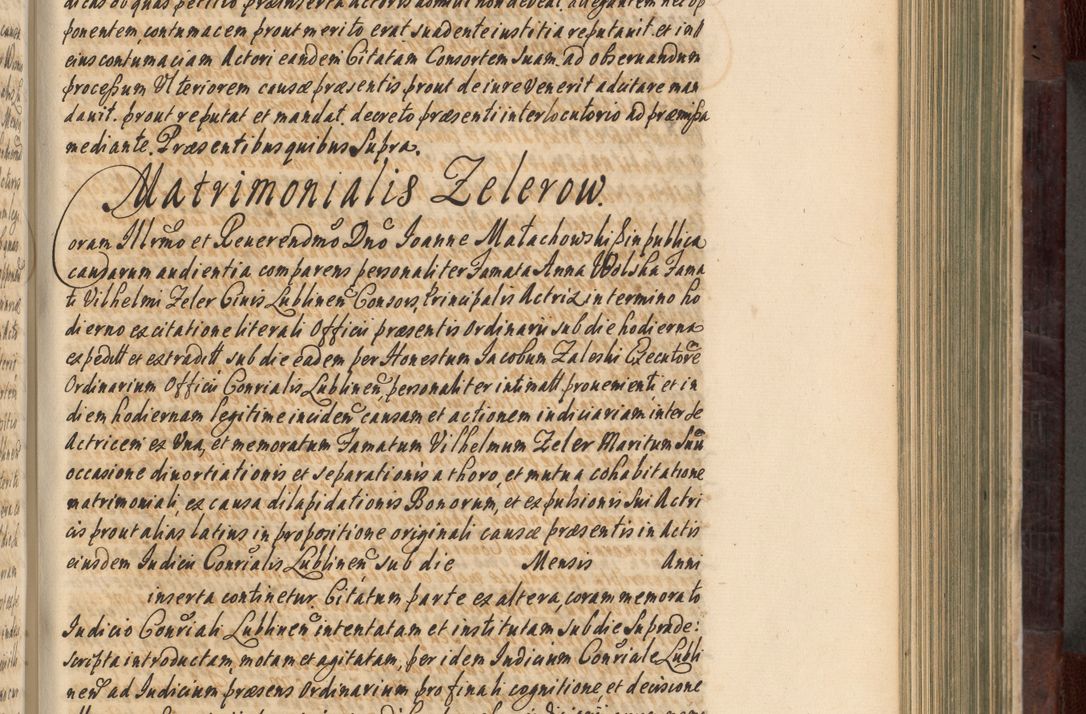 ponentem, contumacem prout merito erat suadente iustitia reputauit. et in
eius contumaciam Actori eandem Citatam Consortem Suam. ad obseruandum
processum Ulteriorem causæ præsentis prout de iure venerit adcitare man
dauit. prout reputat et mandat. decreto præsenti interlocutorio ad præmissa
mediante. Præsentibus quibus Supra.
Matrimonialis Zelerow.
Coram Illrmo et Reuerendmo Dno Joanne Małachowski in publica
causarum audientia comparens personaliter Famata Anna Wolska Fama
ti Vilhelmi Zeler Ciuis Lublinen Consors, Principalis Actrix, in termino ho
dierno ex citatione literali Officii præsentis Ordinarii sub die hodierna
expedit et extradit sub die eadem per Honestum Jacobum Zaleski Executore
Ordinarium Officii Conrialis Lublinen, personaliter intimatt proueniente et in
diem hodiernam legitime inciden causam et actionem iudiciariam inter se
Actricem ex Una, et memoratum Famatum Vilhelmum Zeler Maritum Suu
occasione diuortiationis et separationis a thoro, et mutua cohabitatione
matrimoniali, ex causa dilapidationis Bonorum, et expulsionis Sui Actri
cis prout alias latius in propositione originali causæ præsentis in Actis
eiusdem Judicii Conrialis Lublinen sub die Mensis Anni
inserta continetur. Citatum parte ex altera, coram memorato
Judicio Conriali Lublinen intentatam et institutam sub die Suprade:
scripta introductam, motam et agitatam, per idem Judicium Conriale Lubli
nen ad Judicium præsens Ordinarium pro finali cognitione, et decisione